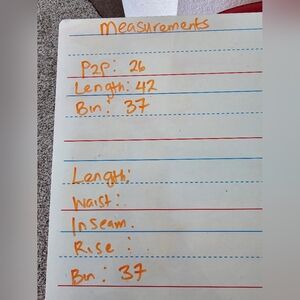 Measurements
P2P: 26
Length: 42
Bin: 37
Length:
Waist:
Inseam.
Rise :
Bin: 37